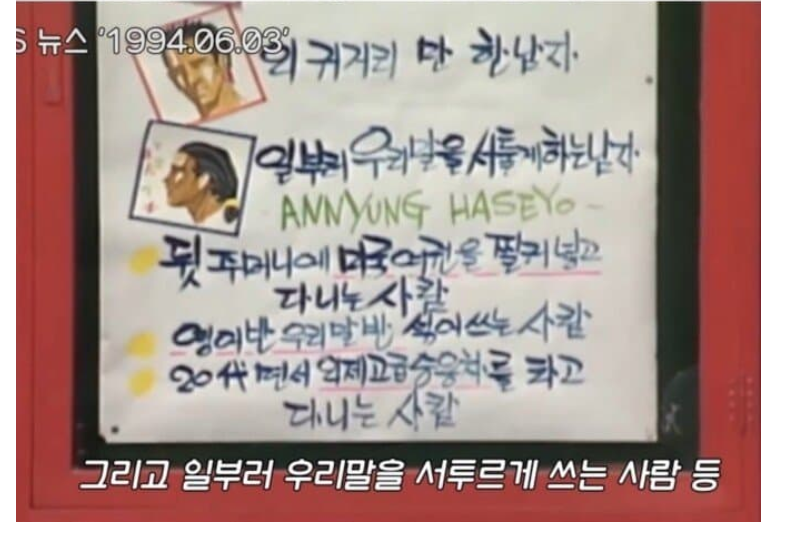 S 뉴스 '1994.06.03'
의 귀거리 만 한 남자.
일부러 우리말을 서툴게하는남자.
- ANNYUNG HASEYO -
뒷 주머니에 미국여권을 찔러넣고
다니는 사람
영어반 우리말반 섞어쓰는 사람
20代면서 외제고급승용차를 타고
다니는 사람
그리고 일부러 우리말을 서투르게 쓰는 사람 등